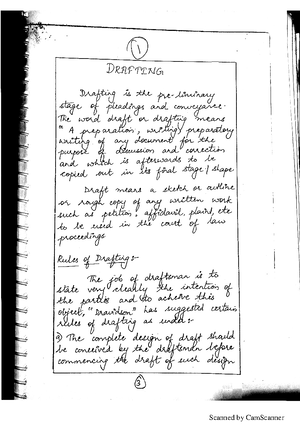 1
DRAFTING
Drafting is the pre-liminary
stage of pleadings and conveyance.
The word draft or drafting means
"A preparation, writing, preparatory
writing of any document for the
purpose of discussion and correction
and which is afterwards to be
copied out in its final stage/shape
Draft means a sketch or outline
or rough copy of any written work
such as petition, affidavit, plaint, etc
to be used in the court of law
proceedings
Rules of Drafting:-
The job of draftsman is to
state very clearly the intention of
the parties and to acheive this
object, "Dravidson" has suggested certain
rules of drafting as under:-
The complete design of draft should
be conceived by the draftsman before
commencing the draft of such design
3
Scanned by CamScanner